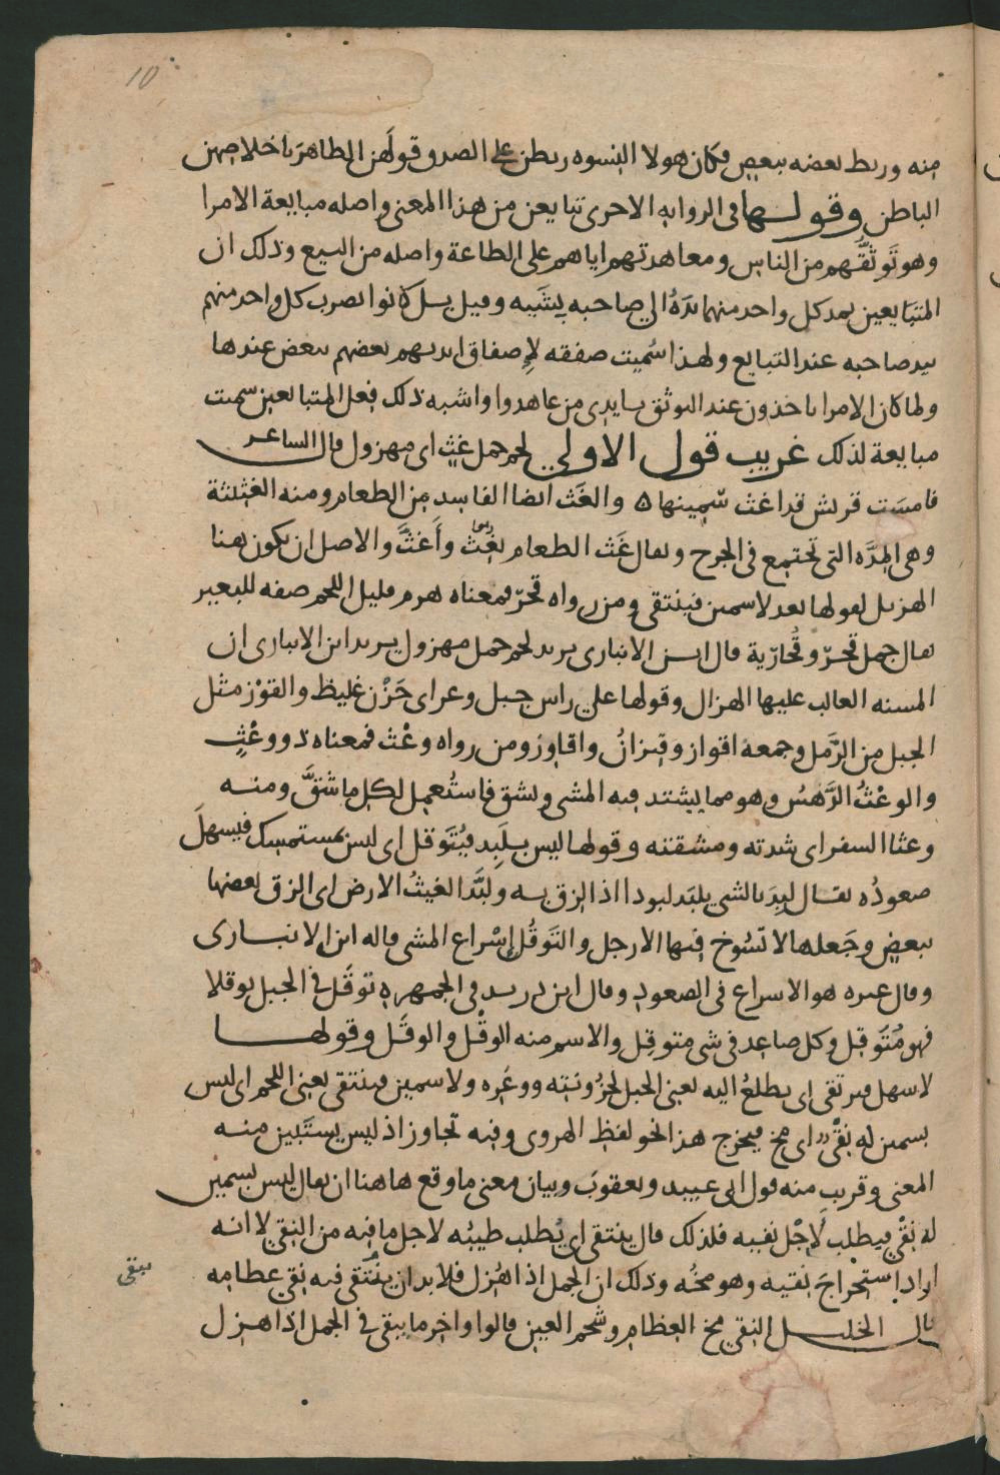 10
منه وربط بعضه ببعض فكان هولا النسوه ربطن على الصدق قولهن الظاهر باخلاصهن
الباطن وقولها في الروايه الاخرى تبايعن من هذا المعنى واصله مبايعة الامرا
وهو تَوثقهم من الناس ومعاهدتهم اياهم على الطاعة واصله من البيع وذلك ان
المتبايعين يمد كل واحد منهما يدَهُ الى صاحبه بِثمَنِه وقيل بل كانوا يضرب كل واحد منهم
بيد صاحبه عند التبايع ولهذا سُميت صفقه لإصفاق ايديهم بعضهم ببعض عندها
ولما كان الامرا ياخذون عند التوثق بايدى من عاهدوا واشبه ذلك فعل المتبايعين سميت
مبايعة لذلك غريب قول الاولى لحم جمل غث اى مهزول قال الشاعر
فامسَت قريش قد اغث سَمِينها ه والغَث ايضا الفاسد من الطعام ومنه الغثيثة
وهى المِدَّه التى تجتمع فى الجرح ويقال غَث الطعام يغث وأغَثَّ والاصل ان يكون هنا
الهزيل لقولها بعد لا سمين فينتقى ومن رواه قحر فمعناه هرم قليل اللحم صفه للبعير
يقال جمل قَحر وقُحارية قال ابن الانبارى يريد لحم جمل مهزول يريد ابن الانبارى ان
المسنه الغالب عليها الهزال وقولها على راس جبل وعر اى حَزْن غليظ والقَوْز مثل
الجبل من الرَّمل وجمعه اقواز وقيزانُ واقاوز ومن رواه وعْث فمعناه ذو وعْثٍ
والوعْثُ الدَّهسُ وهو مما يشتد فيه المشى ويشق فاستُعمِل لكل ما شقَّ ومنه
وعثا السفر اى شدته ومشقته وقولها ليس بلَبِد فيُتَوقل اى ليس بمستمسك فيسهلَ
صعودُه يقال لبِدَ بالشى يلبَد لبودا اذا لزق به ولبَّدَ الغيثُ الارض اى الزق بعضها
ببعض وجَعلها لا تسُوخ فيها الارجل والتَوقُّل إسْراع المشى قاله ابن الانبارى
وقال غيره هو الاسراع فى الصعود وقال ابن دريد فى الجمهره توقَل فى الجبل توقلا
فهو مُتَوقِل وكل صاعد فى شى متوقِل والاسم منه الوقْل والوقَل وقولها
لا سهل فيرتقى اى يطلعُ اليه لعنى الجبل لحزُونته ووعَره ولا سمين فينتقى يعنى اللحم اى ليس
بسمين له نِقْى اى مخ فيخرج هذا نحو لفظ الهروى وفيه تجاوز اذ ليس يستَبين منه
المعنى وقريب منه قول ابى عبيد ويعقوبَ وبيان معنى ما وقع هاهنا ان يقال ليس بسمين
له نِقْىٌ فيطلب لأجْل نقيِه فلذلك قال ينتقى اى يُطلب طيبُه لاجل ما فيه من النقى لا انه
اراد استخراجَ نقيه وهو مخُه وذلك ان الجمل اذا هُزل فلا بد ان يُنْتقى فيه نِقى عظامه
يبقى
قال الخليل النقى مخ العظام وشحم العين قالوا واخر ما يبقى فى الجمل اذا هزل